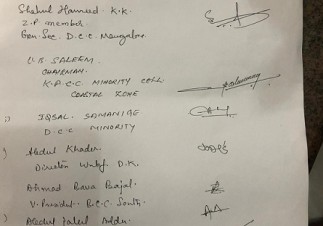 Shahul Hameed. K.K.
Z.P member.
Gen. Sec. D.C.C. Mangalore
U.B. SALEEM
CHAIRMAN
K.P.C.C. MINORITY CELL
COASTAL ZONE
IQBAL. SAMANIGE
D.C.C MINORITY
Abdul Khader
Director Wakf D.K.
Ahmad Bava
V. President. B.C.C. South.
Abdul